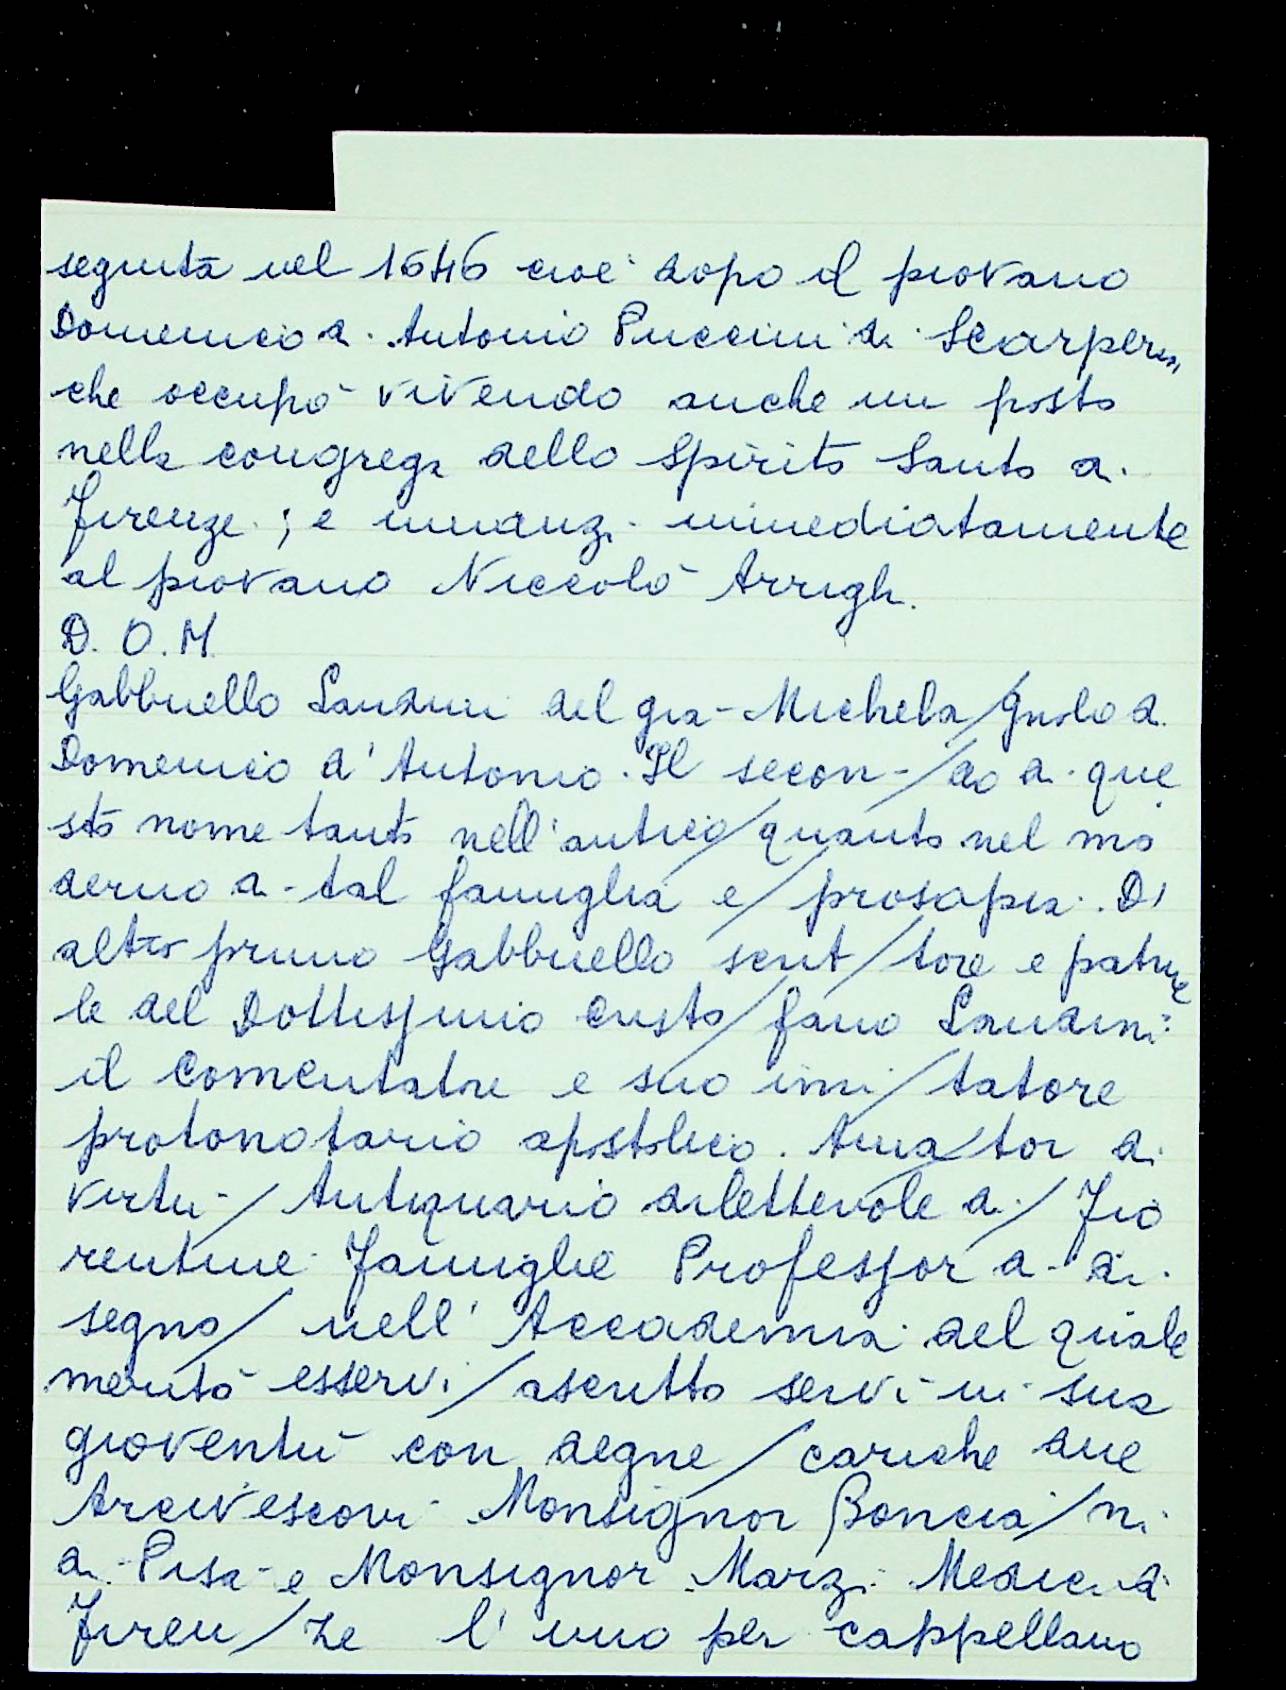 seguita nel 1646 cioè dopo il piovano
Domenico di Antonio Puccini di Scarperia,
che occupò vivendo anche un posto
nella congrega dello Spirito Santo di
Firenze; e innanzi immediatamente
al piovano Niccolò Arrighi.
D. O. M.
Gabbriello Landini del già Michela/gnolo di
Domenico d'Antonio. Il secon-/do di que
sto nome tanto nell'antico/quanto nel mo
derno di tal famiglia e/prosapia. Di
altro primo Gabbriello scrit/tore e patrue
le del Dottissimo Cristo/fano Landini
il comentatre e suo imi/tatore
protonotario apostolico. Ama/tor di
virtù/Antiquario dilettevole di/Fio
rentine Famiglie Professor di di
segno/nell'Accademia del quale
meritò esservi/ascritto servì in sua
gioventù con degne/cariche due
Arcivescovi Monsignor Boncia/ni
di Pisa e Monsignor Marzi Medici di
Firen/ze l'uno per cappellano